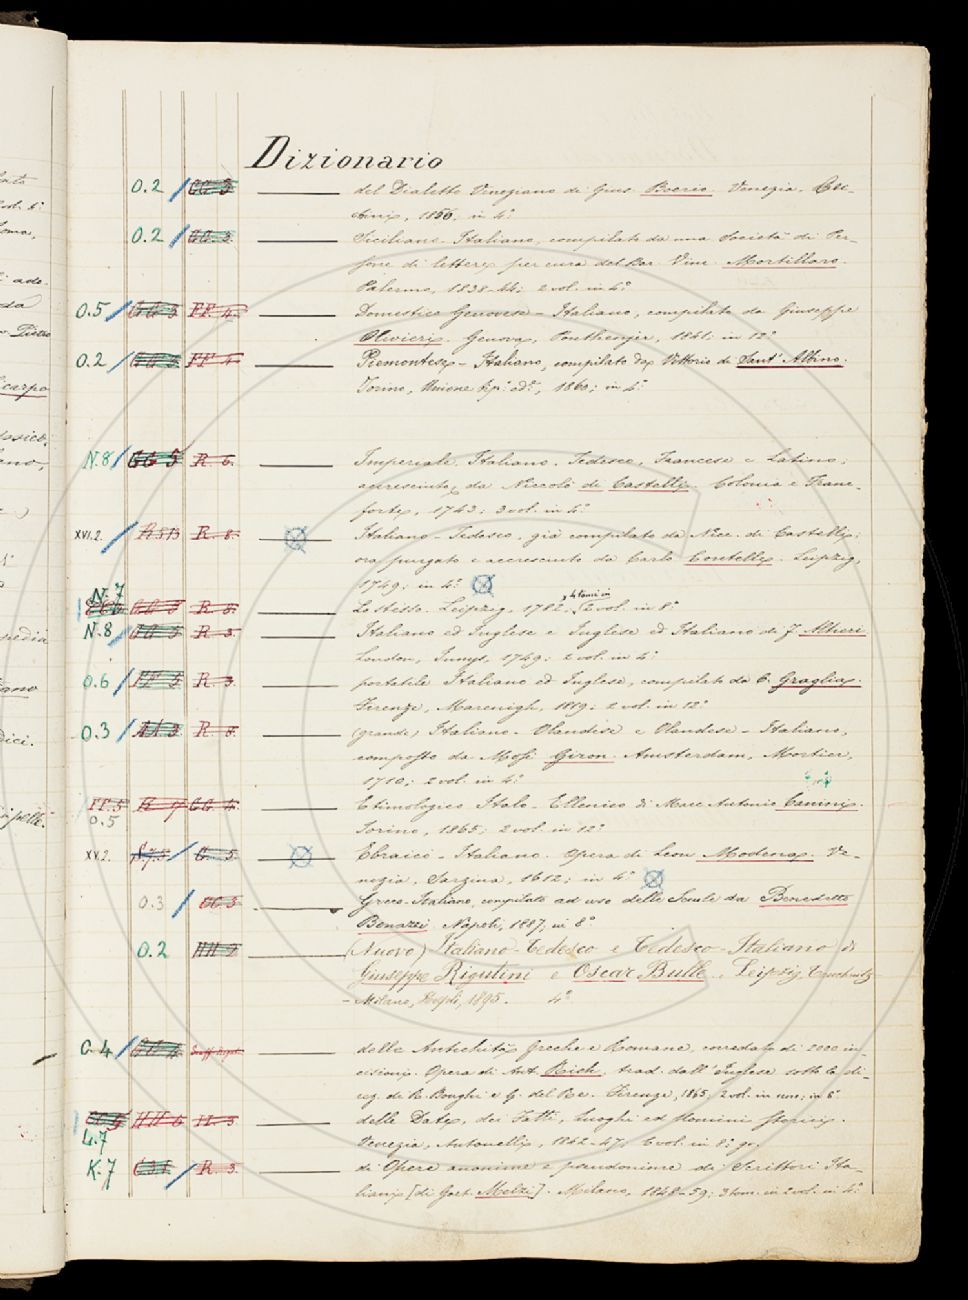 Dizionario
O.2 del Dialetto Veneziano di Gius. Boerio. Venezia. Cec-
chini, 1856, in 4°
O.2 Siciliano-Italiano, compilato da una Società di Per-
sone di lettere per cura del Bar. Vinc. Mortillaro.
Palermo, 1838-44; 2 vol. in 4°
O.5 GG 3 FF. 4. Domestico Genovese-Italiano, compilato da Giuseppe
Olivieri. Genova, Ponthenier, 1841; in 12°
O.2 FF 4 Piemontese-Italiano, compilato da Vittorio di Sant' Albino.
Torino, Unione tip. ed., 1860; in 4°
N.8 GG 5 R. 6. Imperiale. Italiano, Tedesco, Francese e Latino,
accresciuto da Niccolò di Castelli. Colonia e Franc-
forte, 1743; 2 vol. in 4°
XVI.2. R. 8. Italiano-Tedesco, già compilato da Nicc. di Castelli;
ora purgato e accresciuto da Carlo Contelli. Leipzig,
1749; in 4°
N.7
R. 8. Lo stesso. Leipzig, 1782. 4 tomi in 2 vol. in 8°
N.8 R. 3. Italiano ed Inglese e Inglese ed Italiano di F. Altieri
London, Innys, 1749; 2 vol. in 4°
O.6 FF 5 R. 3. portatile Italiano ed Inglese, compilato da C. Graglia.
Firenze, Marenigh, 1819; 2 vol. in 12°
O.3 (grande) Italiano-Olandese e Olandese-Italiano,
composto da Mosè Giron. Amsterdam, Mortier,
1710; 2 vol. in 4°
FF.5 GG. 4. Etimologico Italo-Ellenico di Marc Antonio Canini.
O.5 Torino, 1865; 2 vol. in 12°
XV.2. Ebraico-Italiano. Opera di Leon Modena. Ve-
nezia, Sarzina, 1612; in 4°
O.3 Greco-Italiano, compilato ad uso delle Scuole da Benedetto
Bonazzi. Napoli, 1887, in 8°
O.2 HH 2 (Nuovo) Italiano-Tedesco e Tedesco-Italiano di
Giuseppe Rigutini e Oscar Bulle. Leipzig, Tauchnitz
- Milano, Hoepli, 1895. 4°
O.4 delle Antichità Greche e Romane, corredato di 2000 in-
cisioni. Opera di Ant. Rich, trad. dall' Inglese sotto la di-
rez. di R. Bonghi e G. del Re. Firenze, 1865, 2 vol. in uno; in 8°
HH 6 delle Date, dei Fatti, Luoghi ed Uomini storici.
L.7 Venezia, Antonelli, 1842-47; 6 vol. in 8° gr.
K.7 R. 3. di Opere anonime e pseudonime di Scrittori Ita-
liani [di Gaet. Melzi]. Milano, 1848-59; 3 tom. in 2 vol. in 4°